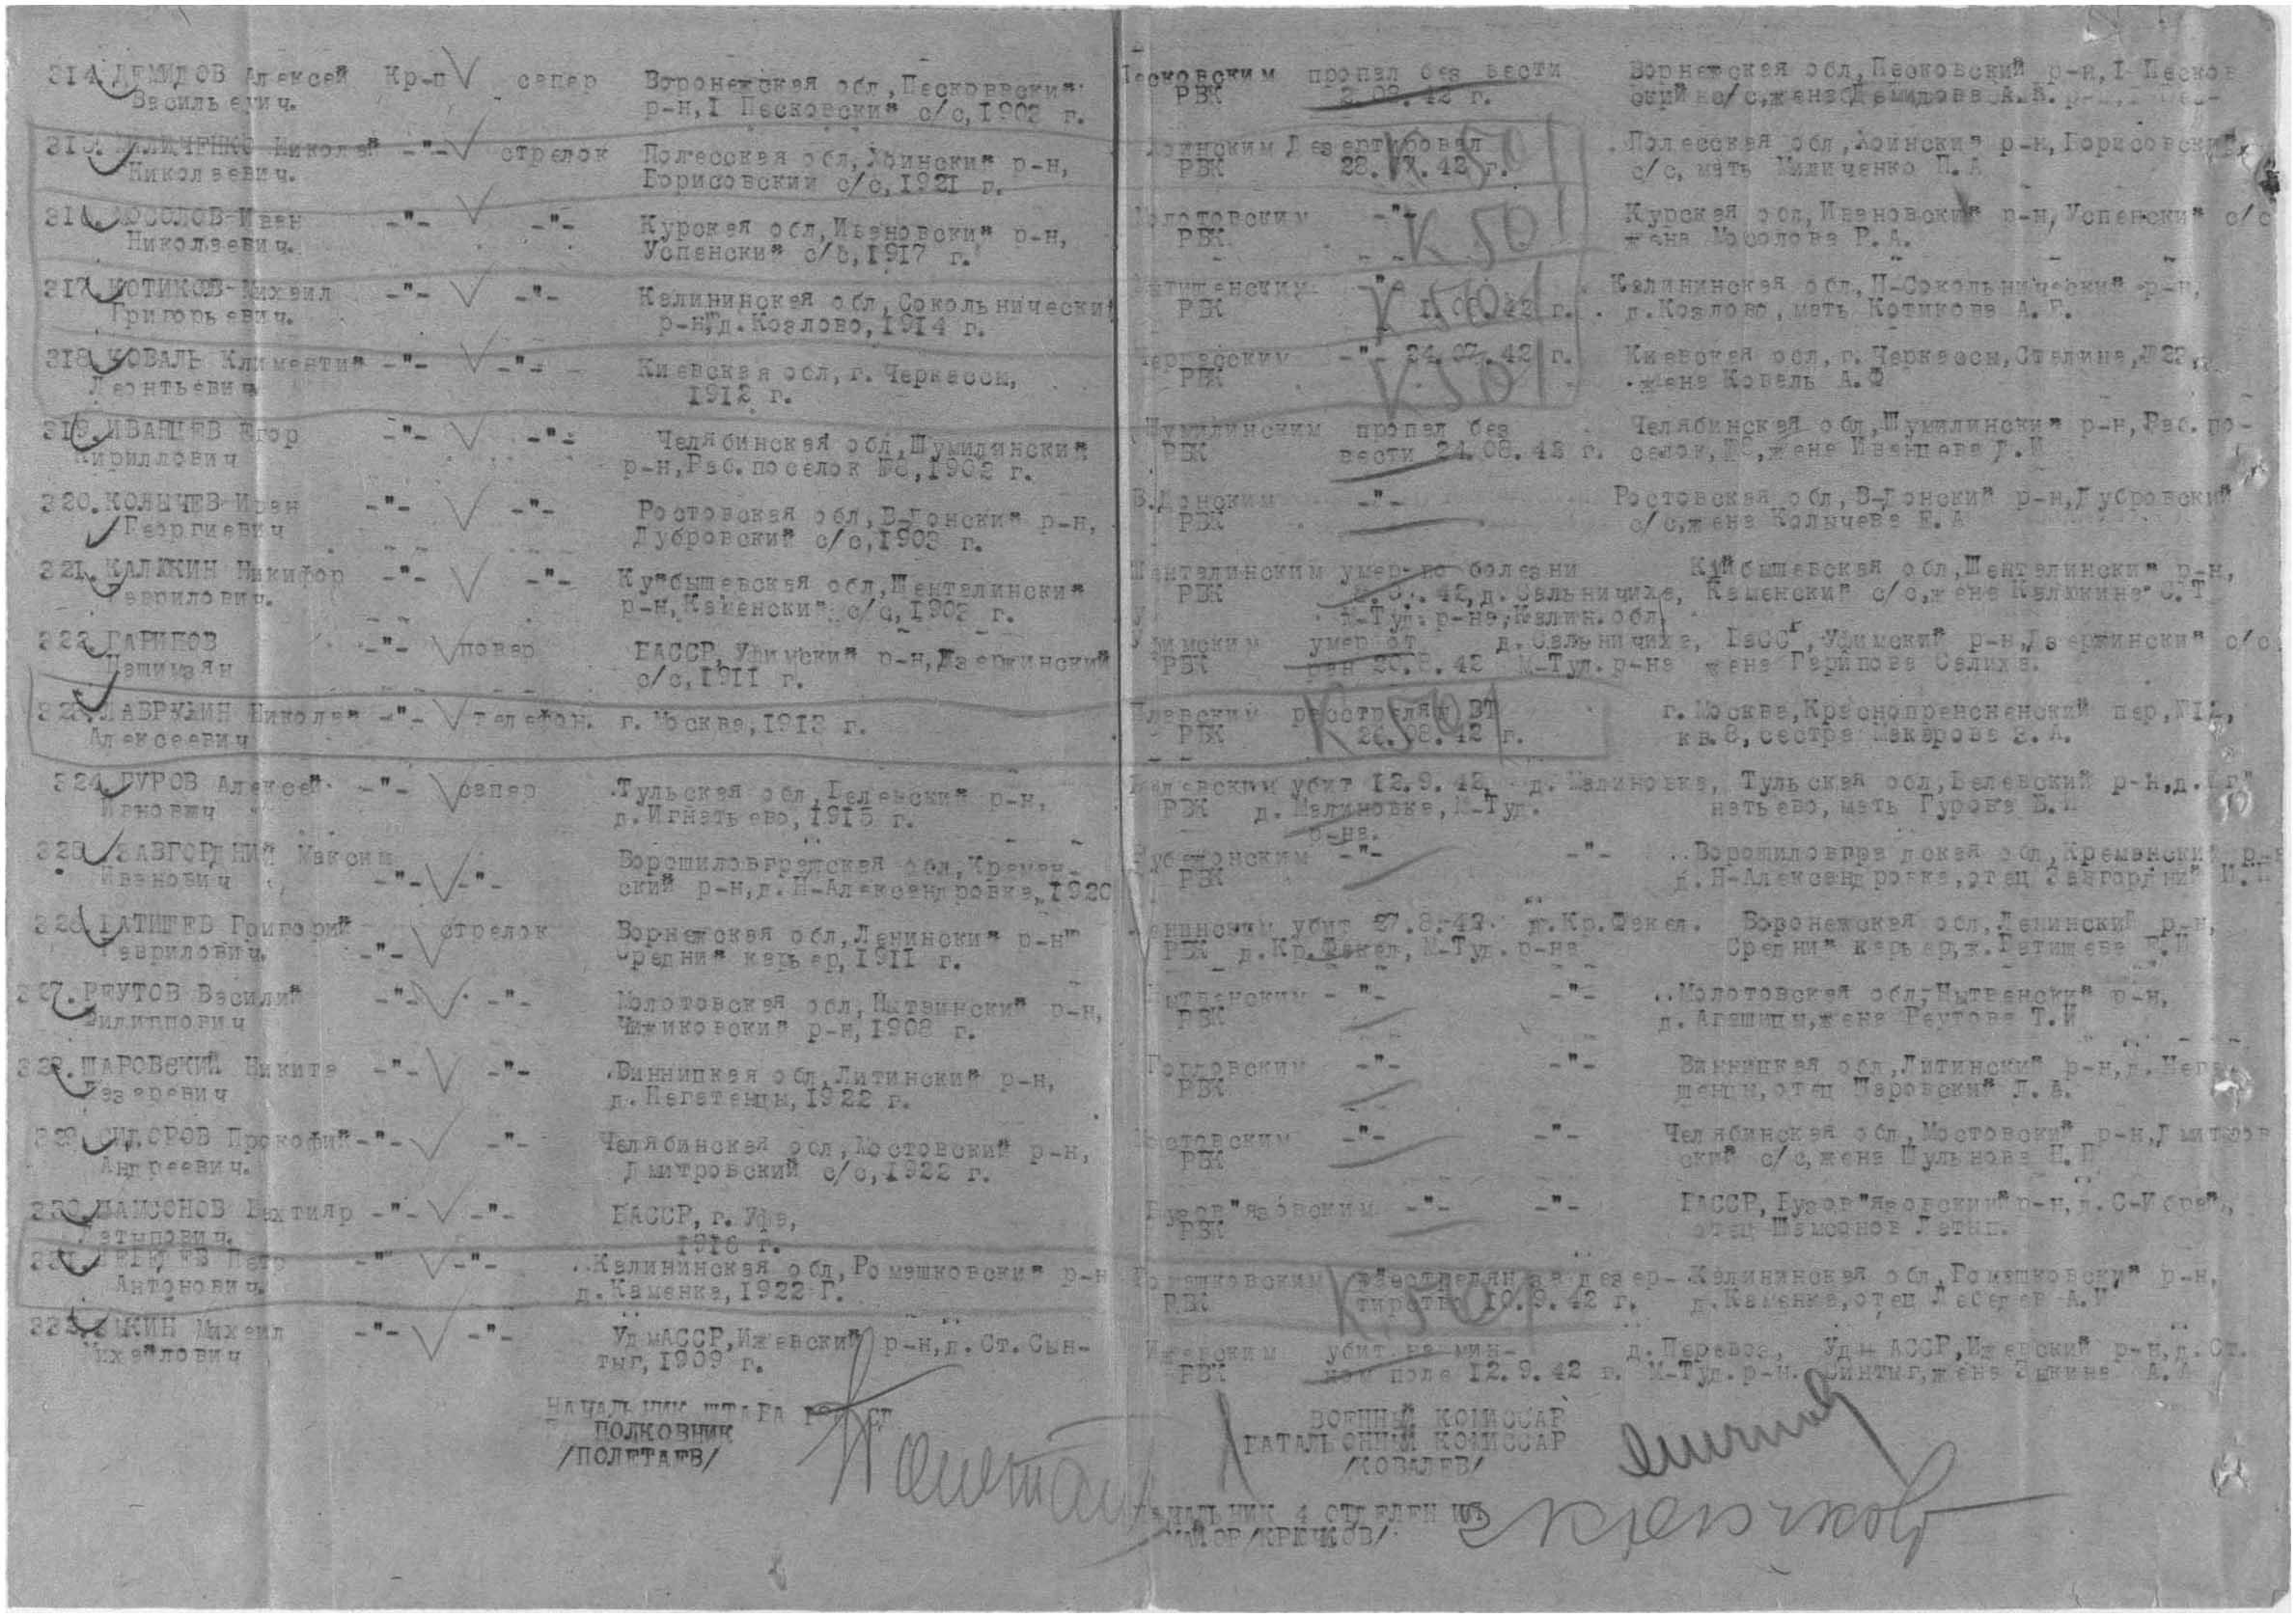 314. ДЕМИДОВ Алексей Кр-ц сапер Воронежская обл, Песковский Песковским пропал без вести Ворнежская обл, Песковский р-н, I Песков
Васильевич. р-н, I Песковский с/с, 1902 г. РВК 3.08.42 г. с/с, жена Демидова А.В.
315. МИЛИЧЕНКО Николай -"- стрелок Полесская обл, Хоинский р-н, Хоинским Дезертировал Полесская обл, Хоинский р-н, Борисовский
Николаевич. Борисовский с/с, 1921 г. РВК 28. .42 г. с/с, мать Миличенко П.А
К 501
316. МОСОЛОВ Иван -"- -"- Курская обл, Ивановский р-н, Золотовским -"- Курская обл, Ивановский р-н, Успенский с/с
Николаевич. Успенский с/с, 1917 г. РВК К 501 жена Мосолова Р.А.
317. КОТИКОВ Михаил -"- -"- Калининская обл, Сокольнический -"- Калининская обл, Н-Сокольнический р-н,
Григорьевич. р-н, д. Козлово, 1914 г. РВК .42 г. д. Козлово, мать Котикова А.Е.
К 501
318. КОВАЛЬ Климентий -"- -"- Киевская обл, г. Черкассы, Черкасским -"- 24.07.42 г. Киевская обл, г. Черкассы, Сталина, № 22,
Леонтьевич 1912 г. РВК К 501 жена Коваль А.Ф
319. ИВАНЦЕВ Егор -"- -"- Челябинская обл, Шумилинский Шумилинским пропал без Челябинская обл, Шумилинский р-н, Раб. по-
Кириллович р-н, Раб. поселок №8, 1902 г. РВК вести 24.08.42 г. селок, №8, жена Иванцева
320. КОЛЫЧЕВ Иван -"- -"- Ростовская обл, В-Донский р-н, В.Донским -"- Ростовская обл, В-Донский р-н, Дубровский
Георгиевич Дубровский с/с, 1903 г. РВК с/с, жена Колычева Е.А
321. КАЛЮКИН Никифор -"- -"- Куйбышевская обл, Шенталинский Шенталинским умер по болезни Куйбышевская обл, Шенталинский р-н,
Гаврилович. р-н, Каменский с/с, 1902 г. РВК .42, д. Сальничиха, Каменский с/с, жена Калюкина С.Т
М-Туд. р-на, Калин. обл
322. ГАРИПОВ -"- повар БАССР, Уфимский р-н, Дзержинский Уфимским умер от д. Сальничиха, БаССР, Уфимский р-н, Дзержинский с/с
Нашимзян с/с, 1911 г. РВК ран 20.8.42 М-Туд. р-на жена Гарипова Салиха.
323. ЛАВРУХИН Николай -"- телефон. г. Москва, 1913 г. расстрелян ВТ г. Москва, Краснопресненский пер, №
Алексеевич РВК 26.08.42 г. кв. 8, сестра Макарова З.А.
К 501
324. ГУРОВ Алексей -"- сапер Тульская обл, Белевский р-н, Белевским убит 12.9.42, д. Малиновка, Тульская обл, Белевский р-н, д. Иг-
Иванович д. Игнатьево, 1915 г. РВК д. Малиновка, М-Туд. натьево, мать Гурова
р-на.
325. ЗАВГОРДНИЙ Максим Ворошиловградская обл, Кремен- Рубежонским -"- -"- Ворошиловградская обл, Кременский р-н
Иванович -"- -"- ский р-н, д. Н-Александровка, 1920 РВК д. Н-Александровка, отец Завгордний И.
326. БАТИЩЕВ Григорий стрелок Ворнежская обл, Ленинский р-н Ленинским убит 27.8.42. д. Кр. Факел. Воронежская обл, Ленинский р-н,
Гаврилович. -"- Средний карьер, 1911 г. РВК д. Кр. Факел, М-Туд. р-на Средний карьер, ж. Батищева
327. РЕУТОВ Василий -"- -"- Молотовская обл, Нытвинский р-н, Нытвенским -"- -"- Молотовская обл, Нытвенский р-н,
Филиппович Чижиковский р-н, 1908 г. РВК д. Агашицы, жена Реутова Т.И
328. ШАРОВСКИЙ Никита -"- -"- Винницкая обл, Литинский р-н, -"- -"- Винницкая обл, Литинский р-н, д.
Лазаревич д. Нагатенцы, 1922 г. РВК отец Шаровский Л.А.
329. СИДОРОВ Прокофий -"- -"- Челябинская обл, Мостовский р-н, Мостовским -"- -"- Челябинская обл, Мостовский р-н, Дмитров
Андреевич. Дмитровский с/с, 1922 г. РВК ский с/с, жена Шульнова
330. ШАМСОНОВ Бахтияр -"- -"- БАССР, г. Уфа, -"- -"- БАССР,
Латыпович. 1918 г. РВК отец Шамсонов Латып.
331. ЛЕБЕДЕВ Петр -"- -"- Калининская обл, Ромашковский р-н Ромашковским расстрелян за дезер- Калининская обл, Ромашковский р-н,
Антонович. д. Каменка, 1922 г. РВК тирство 10.9.42 г. д. Каменка, отец Лебедев А.
К 501
332. ЗЫКИН Михаил -"- -"- УдмАССР, Ижевский р-н, д. Ст. Сын- Ижевским убит на мин- д. Перевоз, Удм АССР, Ижевский р-н, д. Ст.
Михайлович тыг, 1909 г. РВК ном поле 12.9.42 г. М-Туд. р-н. Синтыг, жена Зыкина А.А
НАЧАЛЬНИК ШТАБА СД
ПОЛКОВНИК
/ПОЛЕТАЕВ/
ВОЕННЫЙ КОМИССАР
БАТАЛЬОННЫЙ КОМИССАР
/КОВАЛЕВ/
НАЧАЛЬНИК 4 ОТДЕЛЕНИЯ
МАЙОР /КРЕЧКОВ/